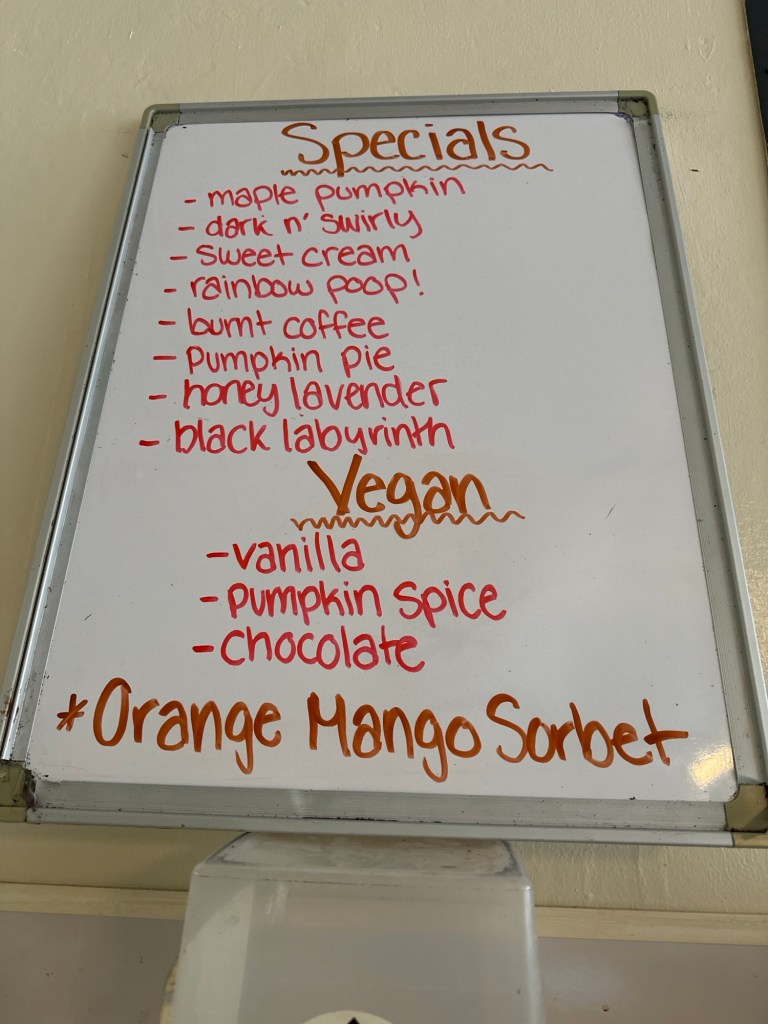 Specials
- maple pumpkin
- dark n' swirly
- sweet cream
- rainbow poop!
- burnt coffee
- pumpkin pie
- honey lavender
- black labyrinth
Vegan
- vanilla
- pumpkin spice
- chocolate
* Orange Mango Sorbet